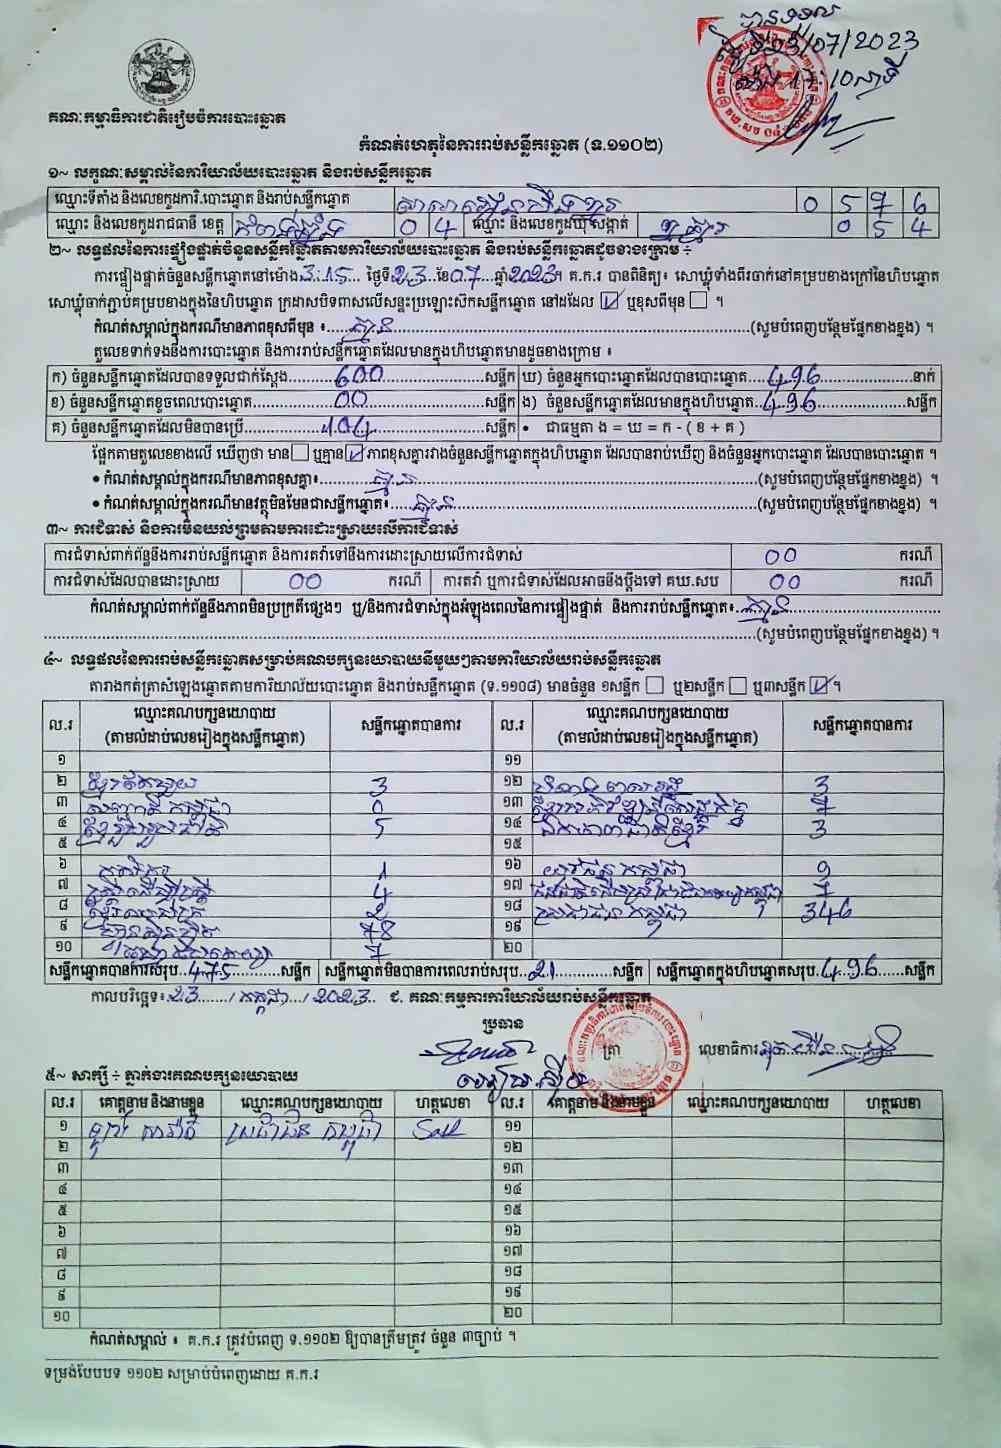 បានទទួល
ថ្ងៃទី23/07/2023
ម៉ោង 17:10នាទី
គណៈកម្មាធិការជាតិរៀបចំការបោះឆ្នោត
កំណត់ហេតុនៃការរាប់សន្លឹកឆ្នោត (ទ.១១០២)
១~ លក្ខណៈសម្គាល់នៃការិយាល័យបោះឆ្នោត និងរាប់សន្លឹកឆ្នោត
ឈ្មោះទីតាំង និងលេខកូដការិ.បោះឆ្នោត និងរាប់សន្លឹកឆ្នោត 0 5 7 6
ឈ្មោះ និងលេខកូដរាជធានី ខេត្ត កំពង់ឆ្នាំង 0 4 ឈ្មោះ និងលេខកូដឃុំ សង្កាត់ 0 5 4
២~ លទ្ធផលនៃការផ្ទៀងផ្ទាត់ចំនួនសន្លឹកឆ្នោតតាមការិយាល័យបោះឆ្នោត និងរាប់សន្លឹកឆ្នោតដូចខាងក្រោម ÷
ការផ្ទៀងផ្ទាត់ចំនួនសន្លឹកឆ្នោតនៅម៉ោង 3:15 ថ្ងៃទី 23 ខែ 07 ឆ្នាំ 2023។ គ.ក.រ បានពិនិត្យ៖ សោឃ្លុំទាំងពីរចាក់នៅគម្របខាងក្រៅនៃហិបឆ្នោត
សោឃ្លុំចាក់ភ្ជាប់គម្របខាងក្នុងនៃហិបឆ្នោត ក្រដាសបិទពាសលើសន្ទះប្រឡោះសឹកសន្លឹកឆ្នោត នៅដដែល ☑ ឬខុសពីមុន ☐ ។
កំណត់សម្គាល់ក្នុងករណីមានភាពខុសពីមុន ៖ គ្មាន (សូមបំពេញបន្ថែមផ្នែកខាងខ្នង) ។
តួលេខទាក់ទងនឹងការបោះឆ្នោត និងការរាប់សន្លឹកឆ្នោតដែលមានក្នុងហិបឆ្នោតមានដូចខាងក្រោម ៖
ក) ចំនួនសន្លឹកឆ្នោតដែលបានទទួលជាក់ស្តែង 600 សន្លឹក ឃ) ចំនួនអ្នកបោះឆ្នោតដែលបានបោះឆ្នោត 496 នាក់
ខ) ចំនួនសន្លឹកឆ្នោតខូចពេលបោះឆ្នោត 00 សន្លឹក ង) ចំនួនសន្លឹកឆ្នោតដែលមានក្នុងហិបឆ្នោត 496 សន្លឹក
គ) ចំនួនសន្លឹកឆ្នោតដែលមិនបានប្រើ 104 សន្លឹក • ជាធម្មតា ង = ឃ = ក - ( ខ + គ )
ផ្អែកតាមតួលេខខាងលើ ឃើញថា មាន ☐ ឬគ្មាន ☑ ភាពខុសគ្នារវាងចំនួនសន្លឹកឆ្នោតក្នុងហិបឆ្នោត ដែលបានរាប់ឃើញ និងចំនួនអ្នកបោះឆ្នោត ដែលបានបោះឆ្នោត ។
• កំណត់សម្គាល់ក្នុងករណីមានភាពខុសគ្នា៖ គ្មាន (សូមបំពេញបន្ថែមផ្នែកខាងខ្នង) ។
• កំណត់សម្គាល់ក្នុងករណីមានវត្ថុមិនមែនជាសន្លឹកឆ្នោត៖ គ្មាន (សូមបំពេញបន្ថែមផ្នែកខាងខ្នង) ។
៣~ ការជំទាស់ និងការមិនយល់ព្រមតាមការដោះស្រាយលើការជំទាស់
ការជំទាស់ពាក់ព័ន្ធនឹងការរាប់សន្លឹកឆ្នោត និងការតវ៉ាទៅនឹងការដោះស្រាយលើការជំទាស់ 00 ករណី
ការជំទាស់ដែលបានដោះស្រាយ 00 ករណី ការតវ៉ា ឬការជំទាស់ដែលអាចនឹងប្តឹងទៅ គឃ.សប 00 ករណី
កំណត់សម្គាល់ពាក់ព័ន្ធនឹងភាពមិនប្រក្រតីផ្សេងៗ ឬ/និងការជំទាស់ក្នុងអំឡុងពេលនៃការផ្ទៀងផ្ទាត់ និងការរាប់សន្លឹកឆ្នោត៖ គ្មាន
(សូមបំពេញបន្ថែមផ្នែកខាងខ្នង) ។
៤~ លទ្ធផលនៃការរាប់សន្លឹកឆ្នោតសម្រាប់គណបក្សនយោបាយនីមួយៗតាមការិយាល័យរាប់សន្លឹកឆ្នោត
តារាងកត់ត្រាសំឡេងឆ្នោតតាមការិយាល័យបោះឆ្នោត និងរាប់សន្លឹកឆ្នោត (ទ.១១០៨) មានចំនួន ១សន្លឹក ☐ ឬ២សន្លឹក ☐ ឬ៣សន្លឹក ☑ ។
ល.រ ឈ្មោះគណបក្សនយោបាយ (តាមលំដាប់លេខរៀងក្នុងសន្លឹកឆ្នោត) សន្លឹកឆ្នោតបានការ ល.រ ឈ្មោះគណបក្សនយោបាយ (តាមលំដាប់លេខរៀងក្នុងសន្លឹកឆ្នោត) សន្លឹកឆ្នោតបានការ
១ ១១
២ 3 ១២ 3
៣ សញ្ជាតិកម្ពុជា 0 ១៣ 7
៤ ខ្មែររួបរួមជាតិ 5 ១៤ ឯកភាពជាតិខ្មែរ 3
៥ ១៥
៦ កសិករ 1 ១៦ យុវជនកម្ពុជា 9
៧ ស្ត្រីដើម្បីស្ត្រី 4 ១៧ 7
៨ 2 ១៨ ប្រជាជនកម្ពុជា 346
៩ ហ៊្វុនស៊ិនប៉ិច 78 ១៩
១០ 7 ២០
សន្លឹកឆ្នោតបានការសរុប 475 សន្លឹក សន្លឹកឆ្នោតមិនបានការពេលរាប់សរុប 21 សន្លឹក សន្លឹកឆ្នោតក្នុងហិបឆ្នោតសរុប 496 សន្លឹក
កាលបរិច្ឆេទ៖ 23 / កក្កដា / 2023 ជ. គណៈកម្មការការិយាល័យរាប់សន្លឹកឆ្នោត
ប្រធាន
ត្រា លេខាធិការ
៥~ សាក្សី ÷ ភ្នាក់ងារគណបក្សនយោបាយ
ល.រ គោត្តនាម និងនាមខ្លួន ឈ្មោះគណបក្សនយោបាយ ហត្ថលេខា ល.រ គោត្តនាម និងនាមខ្លួន ឈ្មោះគណបក្សនយោបាយ ហត្ថលេខា
១ ប្រជាជនកម្ពុជា ១១
២ ១២
៣ ១៣
៤ ១៤
៥ ១៥
៦ ១៦
៧ ១៧
៨ ១៨
៩ ១៩
១០ ២០
កំណត់សម្គាល់ ៖ គ.ក.រ ត្រូវបំពេញ ទ.១១០២ ឱ្យបានត្រឹមត្រូវ ចំនួន ៣ច្បាប់ ។
ទម្រង់បែបបទ ១១០២ សម្រាប់បំពេញដោយ គ.ក.រ